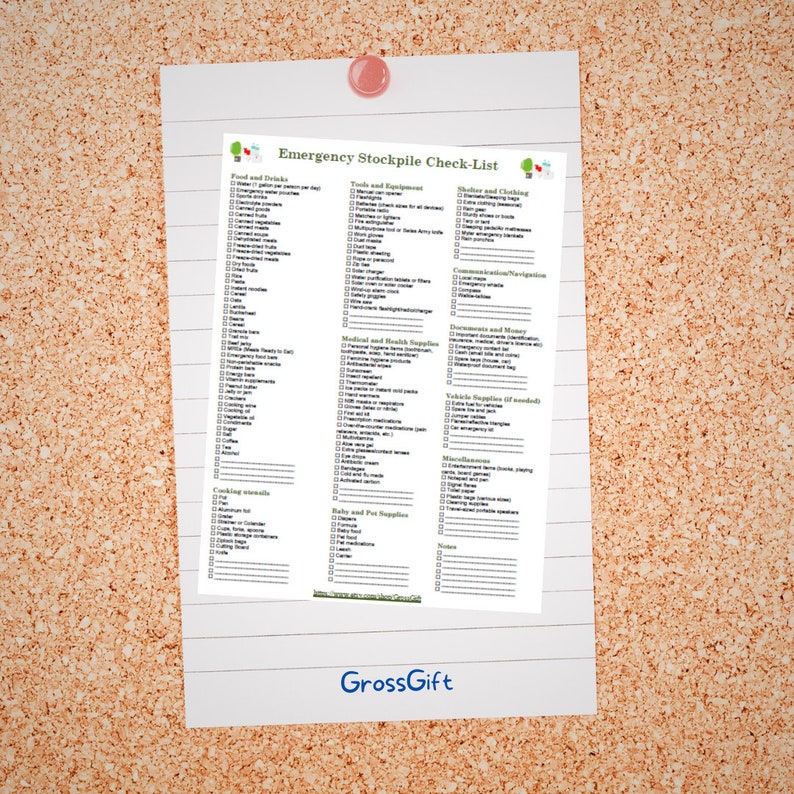 Emergency Stockpile Check-List
Food and Drinks
Water (1 gallon per person per day)
Emergency water pouches
Sports drinks
Electrolyte powders
Canned goods
Canned fruits
Canned vegetables
Canned meats
Canned soups
Dehydrated meals
Freeze-dried fruits
Freeze-dried vegetables
Freeze-dried meats
Dry foods
Dried fruits
Rice
Pasta
Instant noodles
Cereal
Oats
Lentils
Buckwheat
Beans
Cereal
Granola bars
Trail mix
Beef jerky
MREs (Meals Ready to Eat)
Emergency food bars
Non-perishable snacks
Protein bars
Energy bars
Vitamin supplements
Peanut butter
Jelly or jam
Crackers
Cooking wine
Cooking oil
Vegetable oil
Condiments
Sugar
Salt
Coffee
Tea
Alcohol
Cooking utensils
Pot
Pan
Aluminum foil
Grater
Strainer or Colander
Cups, forks, spoons
Plastic storage containers
Ziplock bags
Cutting Board
Knife
Tools and Equipment
Manual can opener
Flashlights
Batteries (check sizes for all devices)
Portable radio
Matches or lighters
Fire extinguisher
Multipurpose tool or Swiss Army knife
Work gloves
Dust masks
Duct tape
Plastic sheeting
Rope or paracord
Zip ties
Solar charger
Water purification tablets or filters
Solar oven or solar cooker
Wind-up alarm clock
Safety goggles
Wire saw
Hand-crank flashlight/radio/charger
Medical and Health Supplies
Personal hygiene items (toothbrush,
toothpaste, soap, hand sanitizer)
Feminine hygiene products
Antibacterial wipes
Sunscreen
Insect repellent
Thermometer
Ice packs or instant cold packs
Hand warmers
N95 masks or respirators
Gloves (latex or nitrile)
First aid kit
Prescription medications
Over-the-counter medications (pain
relievers, antacids, etc.)
Multivitamins
Aloe vera gel
Extra glasses/contact lenses
Eye drops
Antibiotic cream
Bandages
Cold and flu meds
Activated carbon
Baby and Pet Supplies
Diapers
Formula
Baby food
Pet food
Pet medications
Leash
Carrier
Shelter and Clothing
Blankets/Sleeping bags
Extra clothing (seasonal)
Rain gear
Sturdy shoes or boots
Tarp or tent
Sleeping pads/Air mattresses
Mylar emergency blankets
Rain ponchos
Communication/Navigation
Local maps
Emergency whistle
Compass
Walkie-talkies
Documents and Money
Important documents (identification,
insurance, medical, driver's licence etc)
Emergency contact list
Cash (small bills and coins)
Spare keys (house, car)
Waterproof document bag
Vehicle Supplies (if needed)
Extra fuel for vehicles
Spare tire and jack
Jumper cables
Flares/reflective triangles
Car emergency kit
Miscellaneous
Entertainment items (books, playing
cards, board games)
Notepad and pen
Signal flares
Toilet paper
Plastic bags (various sizes)
Cleaning supplies
Travel-sized portable speakers
Notes
https://www.etsy.com/shop/GrossGift
GrossGift